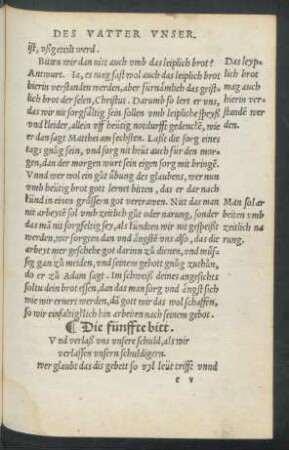 DES VATTER VNSER.
ist, vßgeteilt werd.
Bitten wir dan nitt auch vmb das leiplich brot?
Antwurt. Ia, es mag fast wol auch das leiplich brot
hierin verstanden werden, aber fürnämlich das geist-
lich brot der selen, Christus. Darumb so lert er vns,
das wir nit sorgfältig sein sollen vmb leipliche speyß
vnd kleider, allein vff heütig notdurfft gedencke, wie
er dan sagt Matthei am sechsten. Laßt die sorg eines
tags gnůg sein, vnd sorg nit heüt auch für den mor-
gen, dan der morgen wurt sein eigen sorg mit bringē.
Vnnd wer wol ein gůt übung des glaubens, wer nun
vmb heütig brot gott lernet bitten, das er dar nach
künd in einen grössern got vertrawen. Nüt das man
nit arbeyte sol vmb zeitlich gůt oder narung, sonder
das mā nit sorgfeltig sey, als kündten wir nit gespeißt
werden, wir sorgten dan vnd ängste vns also, das die
arbeyt nier geschehe got darinn zů dienen, vnd müs-
sig gan zů meiden, vnd seinem gebott gnůg zuchůn,
do er zů Adam sagt. Im schweiß deines angesichts
soltu dein brot essen, dan das man sorg vnd ängst sich
wie wir ernert werden, dā gott wir das wol schaffen,
so wir einfaltigklich hin arbeiten nach seinem gebot.
¶ Die fünffte bitt.
Vnd verlaß vns vnsere schuld, als wir
verlassen vnsern schuldigern.
wer glaubt das dis gebett so vyl leüt trifft vnnd
e v
Das leyp-
lich brot
mag auch
hierin ver-
stande wer
den.
Man sol ar
beiten vmb
zeitlich na
rung.